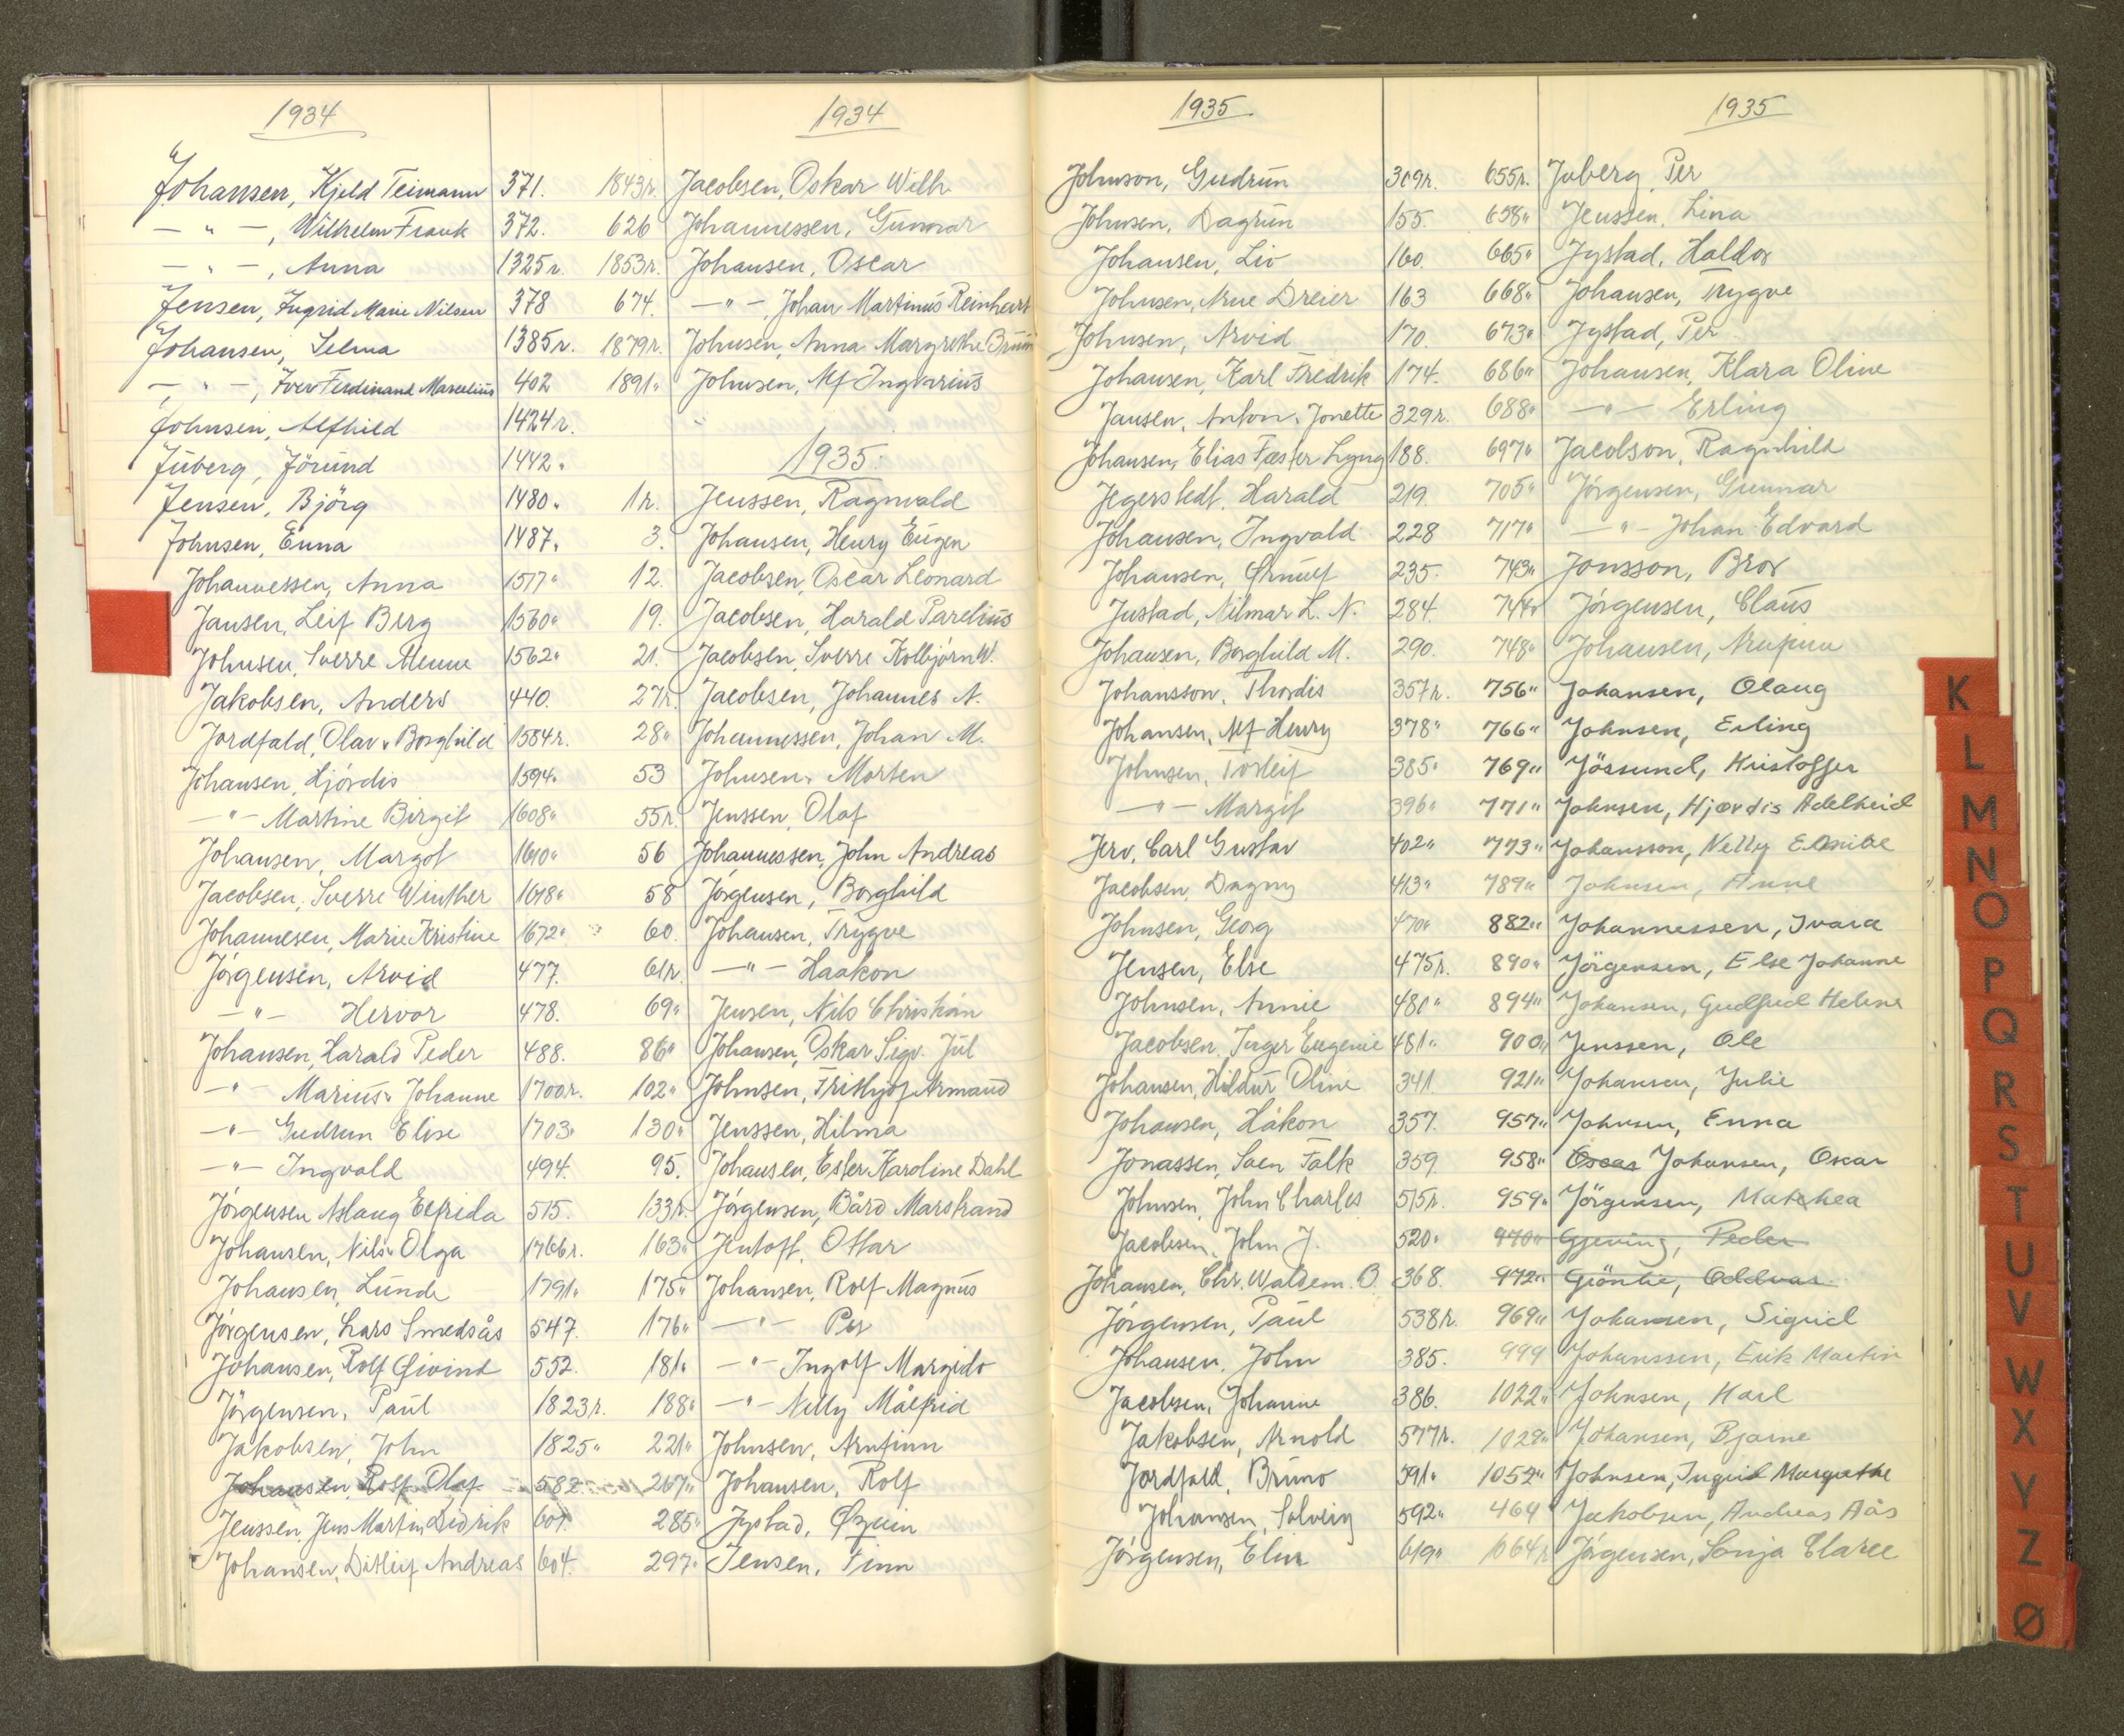 1934
Johansen, Kjeld Teimann 371.
— " —, Wilhelm Frank 372.
— " —, Anna 1325r.
Jensen, Ingrid Marie Nilsen 378
Johansen, Selma 1385r.
— " —, Iver Ferdinand Marcelius 402
Johnsen, Alfhild 1424r.
Juberg, Jörund 1442"
Jensen, Björg 1480"
Johnsen, Enna 1487"
Johannessen, Anna 1517"
Jansen, Leif Berg 1560"
Johnsen, Sverre 1562"
Jakobsen, Anders 440.
Jordfald, Olav " Borghild 1584r.
Johansen, Hjördis 1594"
— " — Martine Birgit 1608"
Johansen, Margot 1610"
Jacobsen, Sverre Winther 1618"
Johannesen, Marie Kristine 1672"
Jörgensen, Arvid 477.
— " — Hervor 478.
Johansen, Harald Peder 488.
— " — Marius " Johanne 1700r.
— " — Gudrun Elise 1703"
— " — Ingvald 494.
Jörgensen Aslaug Elfrida 515.
Johansen, Nils " Olga 1766r.
Johansen, Lunde 1791"
Jörgensen, Lars Smedsås 547.
Johansen, Rolf Øivind 552.
Jörgensen, Paul 1823r.
Jakobsen, John 1825"
Johansen, Rolf Olaf 582
Jenssen, Jens Martin Didrik 601.
Johansen, Ditlef Andreas 604.
1934
1843r. Jacobsen, Oskar Wilh.
626 Johannessen, Gunnar
1853r. Johansen, Oscar
674. — " —, Johan Martinus Reinhart
1879r. Johnsen, Anna Margrethe Bruun
1891" Johnsen, Alf Ingvarius
1935.
1r. Jenssen, Ragnvald
3. Johansen, Henry Eugen
12. Jacobsen, Oscar Leonard
19. Jacobsen, Harald Parelius
21. Jacobsen, Sverre Kolbjörn W.
27r. Jacobsen, Johannes N.
28" Johannessen, Johan M.
53 Johnsen, Morten
55r. Jenssen, Olaf
56 Johannessen, John Andreas
58 Jörgensen, Borghild
60. Johansen, Trygve
61r. — " — Haakon
69" Jensen, Nils Christian
86" Johansen, Oskar Sigv. Jul
102" Johnsen, Frithjof Armand
130" Jenssen, Hilma
95. Johansen, Ester Karoline Dahl
133r. Jörgensen, Bård Marstrand
163" Jentoft, Ottar
175" Johansen, Rolf Magnus
176" — " — Per
181" — " — Ingolf Margido
188" — " — Nelly Målfrid
221" Johnsen, Arnfinn
267" Johansen, Rolf
285" Jystad, Özeen
297" Jensen, Finn
1935
Johnson, Gudrun 309r.
Johnsen, Dagrun 155.
Johansen, Liv 160.
Johnsen, Arne Dreier 163
Johnsen, Arvid 170.
Johansen, Karl Fredrik 174.
Jansen, Anton " Jonette 329r.
Johansen, Elias Fæster Lyng 188.
Jegerstedt, Harald 219
Johansen, Ingvald 228
Johansen, Ørnulf 235.
Justad, Nilmar L. N. 284.
Johansen, Borghild M. 290.
Johansson, Thordis 357r.
Johansen, Alf Henry 378"
Johnsen, Torleif 385"
— " — Margit 396"
Jerv, Carl Gustav 402"
Jacobsen, Dagny 413"
Johnsen, Georg 470"
Jensen, Else 475r.
Johnsen, Annie 480"
Jacobsen, Inger Eugenie 481"
Johansen, Hildur Oline 341
Johansen, Håkon 357.
Jonassen, Saen Falk 359
Johnsen, John Charles 515r.
Jacobsen, John J. 520"
Johansen, Chr. Waldem. O. 368.
Jörgensen, Paul 538r.
Johansen, John 385.
Jacobsen, Johanne 386.
Jakobsen, Arnold 577r.
Jordfald, Bruno 591"
Johansen, Solveig 592"
Jörgensen, Elin 619"
1935
655r. Juberg, Per
658" Jenssen, Lina
665" Jystad, Haldor
668" Johansen, Trygve
673" Jystad, Per
686" Johansen, Klara Oline
688" — " — Erling
697" Jacobson, Ragnhild
705" Jörgensen, Gunnar
717" — " — Johan Edvard
743" Jonsson, Bror
744r Jörgensen, Claus
748" Johansen, Arnfinn
756" Johansen, Olaug
766" Johnsen, Erling
769" Jössund, Kristoffer
771" Johnsen, Hjørdis Adelheid
773" Johansson, Nelly
789" Johnsen, Anne
882" Johannessen, Ivara
890" Jörgensen, Else Johanne
894" Johansen, Gudfred Helene
900" Jenssen, Ole
921" Johansen, Julie
957" Johnsen, Enna
958" Oscar Johansen, Oscar
959" Jörgensen, Mathea
970" Gjeving, Peder
972" Grönlie, Oddvar
969" Johansen, Sigrid
999 Johanssen, Erik Martin
1022" Johnsen, Karl
1029" Johansen, Bjarne
1052" Johnsen, Ingrid Margrethe
464 Jakobsen, Andreas Aås
1064r Jörgensen, Sonja Claree
K
L
M
N
O
P
Q
R
S
T
U
V
W
X
Y
Z
Ø